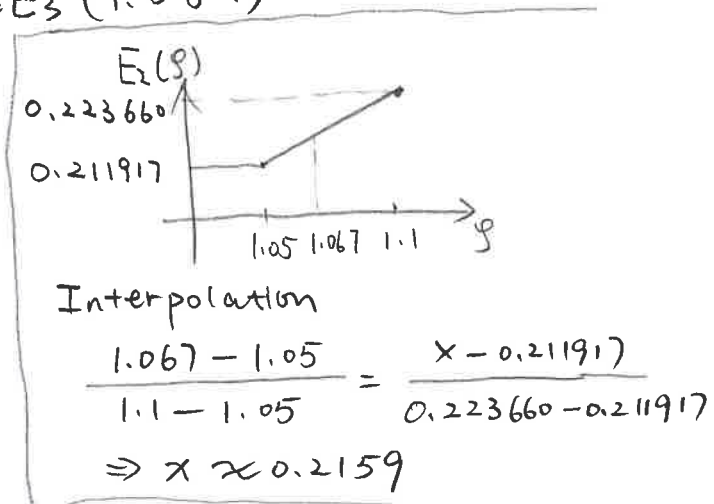 E3 (1.067)
E₂(ρ)
0.223660
0.211917
1.05 1.067 1.1 ρ
Interpolation
1.067 - 1.05 / 1.1 - 1.05 = x - 0.211917 / 0.223660 - 0.211917
⇒ x ≈ 0.2159